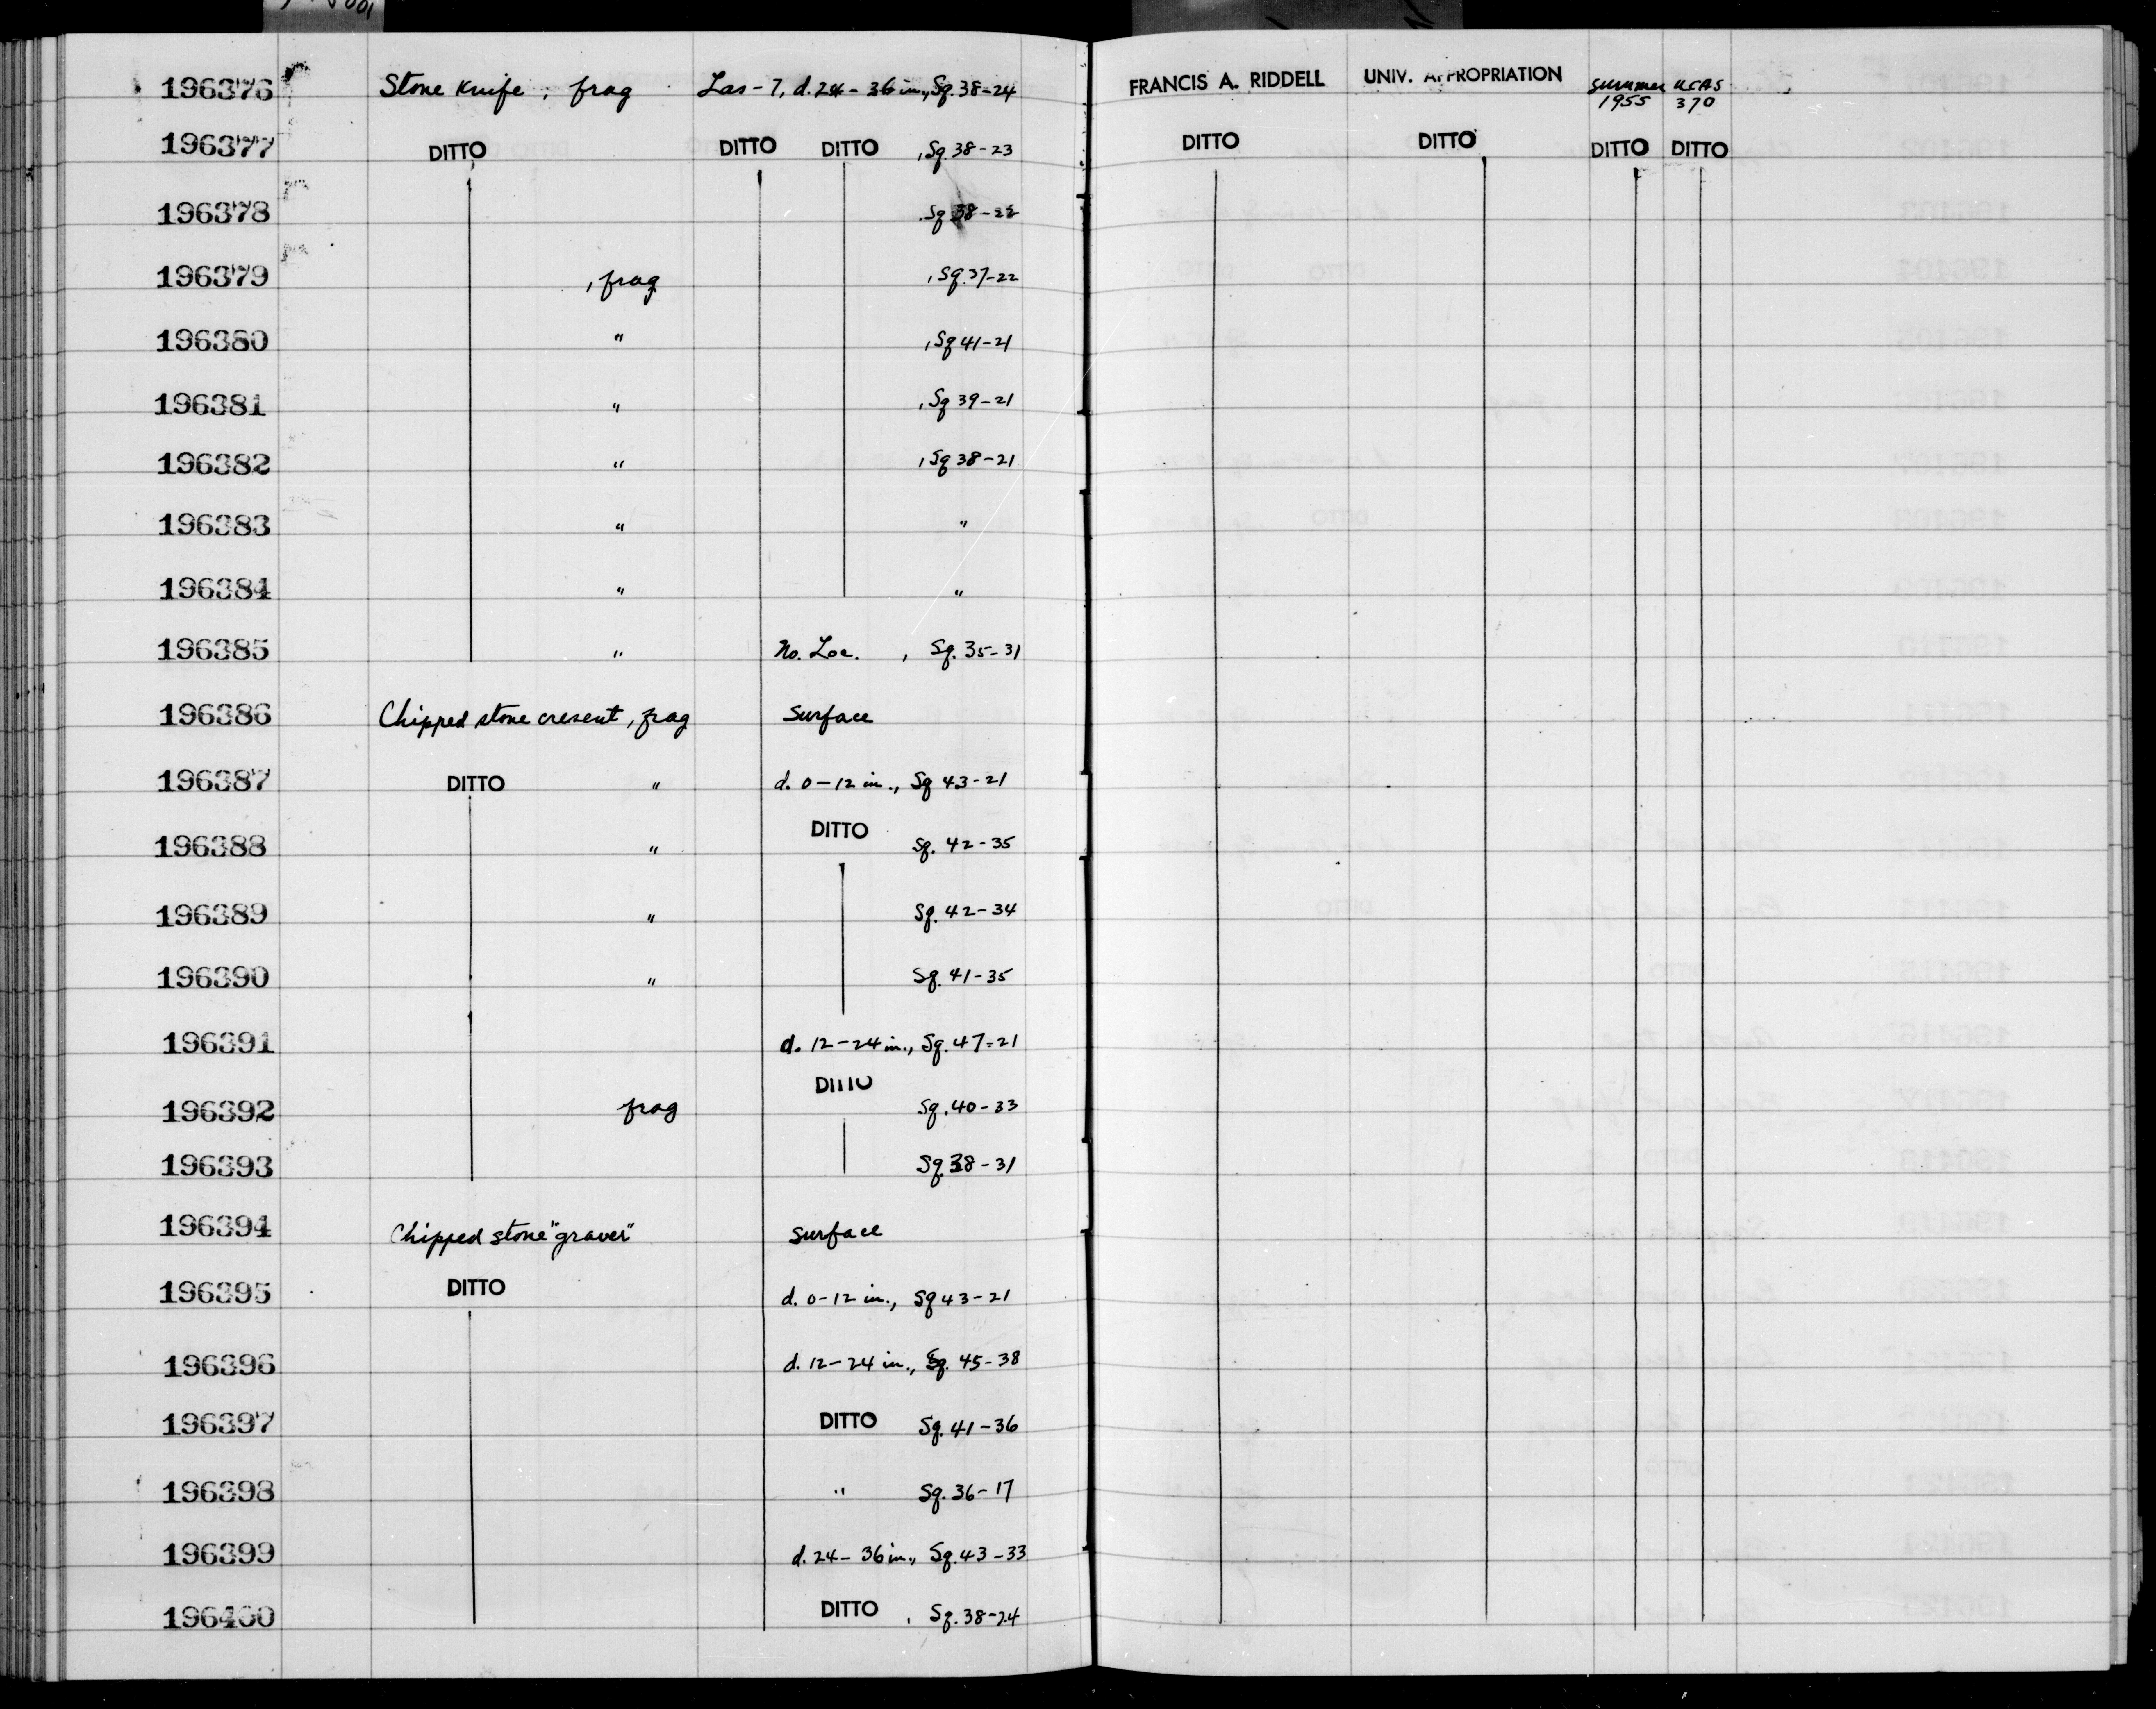 196376 Stone Knife, frag Las-7, d. 24-36 in., Sq. 38-24 FRANCIS A. RIDDELL UNIV. APPROPRIATION Summer 1955 UCAS 370
196377 DITTO DITTO DITTO , Sq. 38-23 DITTO DITTO DITTO DITTO
196378 , Sq 38-22
196379 , frag , Sq. 37-22
196380 " , Sq 41-21
196381 " , Sq 39-21
196382 " , Sq 38-21
196383 " "
196384 " "
196385 " No. Loc. , Sq. 35-31
196386 Chipped stone cresent, frag Surface
196387 DITTO " d. 0-12 in., Sq 43-21
196388 " DITTO Sq. 42-35
196389 " Sq. 42-34
196390 " Sq. 41-35
196391 d. 12-24 in., Sq. 47-21
196392 frag DITTO Sq. 40-33
196393 Sq. 38-31
196394 Chipped stone "graver" Surface
196395 DITTO d. 0-12 in., Sq 43-21
196396 d. 12-24 in., Sq. 45-38
196397 DITTO Sq. 41-36
196398 " Sq. 36-17
196399 d. 24-36 in., Sq. 43-33
196400 DITTO , Sq. 38-24